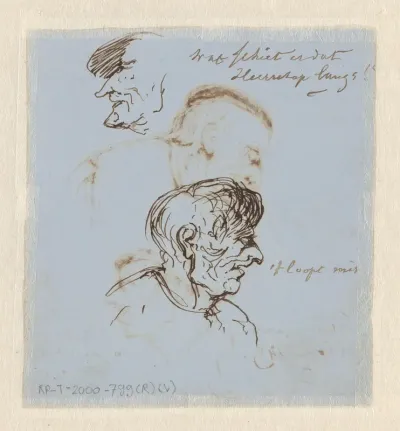 Wat schiet er dat
Heerschap langs!
't loopt mis
RP-T-2000-799(R)(V)